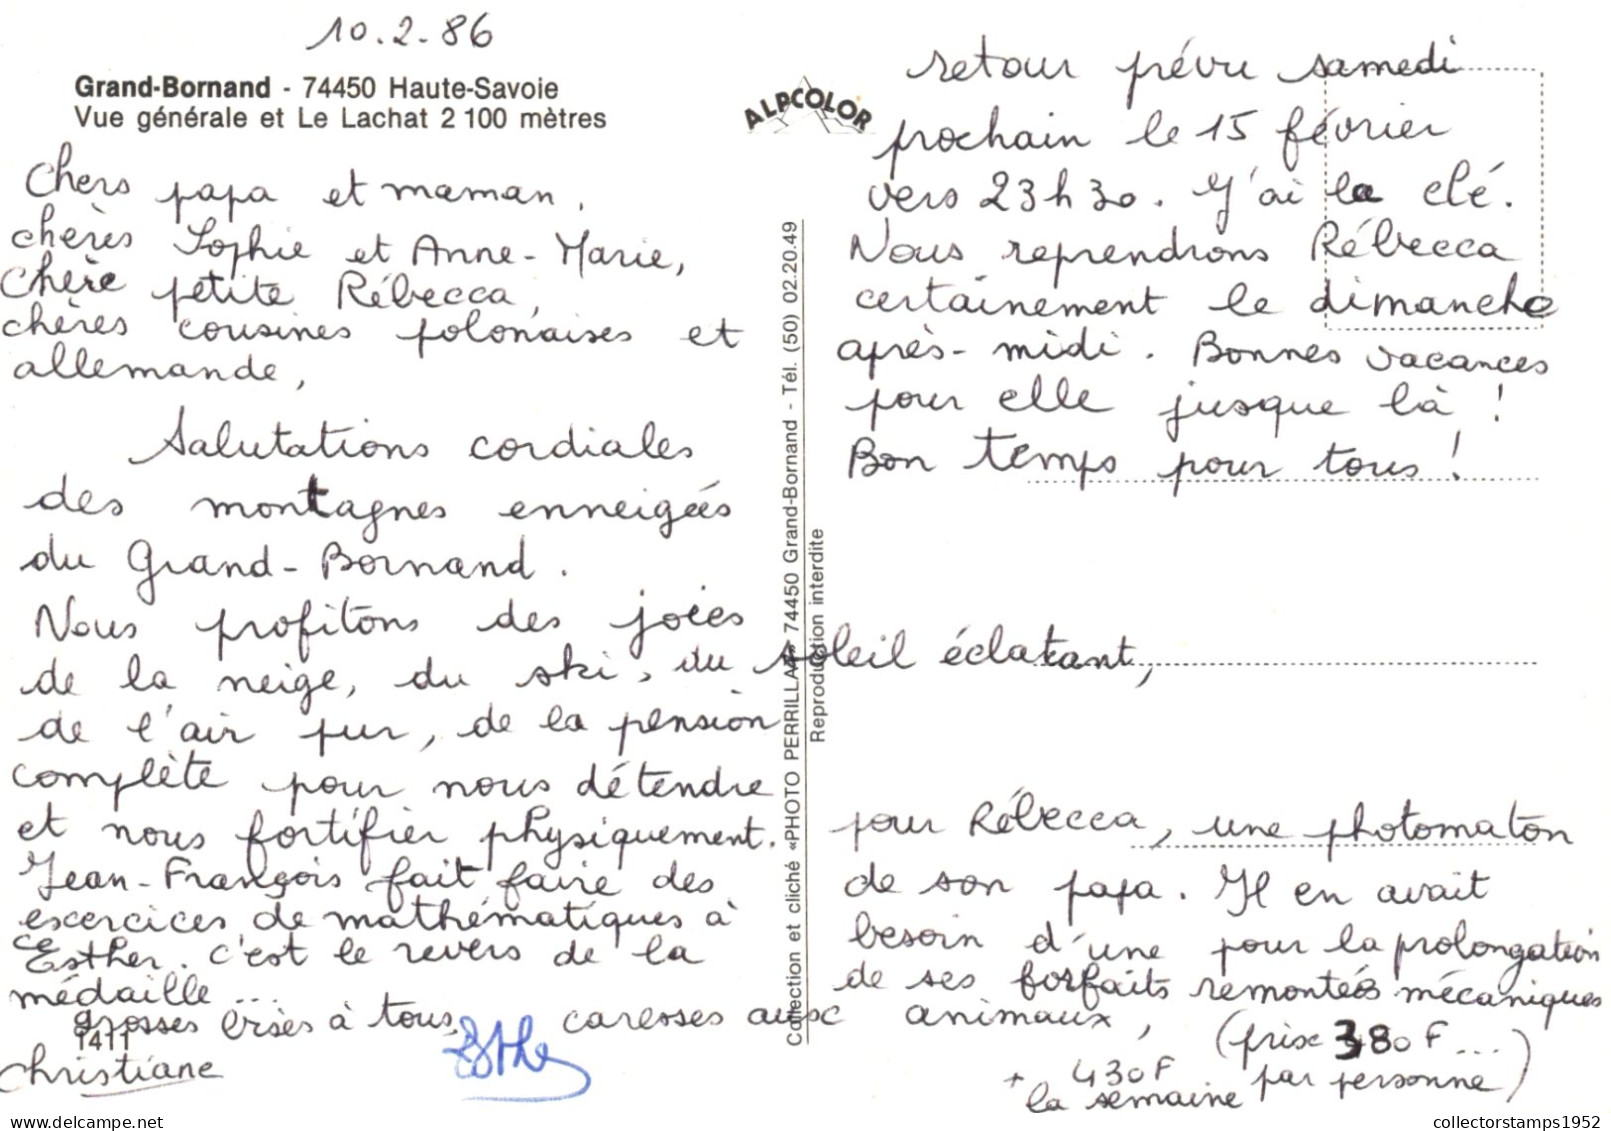 10.2.86
Grand-Bornand - 74450 Haute-Savoie
Vue générale et Le Lachat 2 100 mètres
Chers papa et maman,
chères Sophie et Anne-Marie,
Chère petite Rébecca,
chères cousines polonaises et
allemande,
Salutations cordiales
des montagnes enneigées
du Grand-Bornand.
Nous profitons des joies
de la neige, du ski, du soleil éclatant,
de l'air pur, de la pension
complète pour nous détendre
et nous fortifier physiquement.
Jean-François fait faire des
exercices de mathématiques à
Esther. C'est le revers de la
médaille...
grosses bises à tous, caresses aux animaux,
1411
Christiane
Esther
ALPCOLOR
Collection et cliché «PHOTO PERRILLAT» 74450 Grand-Bornand - Tél. (50) 02.20.49
Reproduction interdite
retour prévu samedi
prochain le 15 février
vers 23h30. J'ai la clé.
Nous reprendrons Rébecca
certainement le dimanche
après-midi. Bonnes vacances
pour elle jusque là !
Bon temps pour tous !
pour Rébecca, une photomaton
de son papa. Il en avait
besoin d'une pour la prolongation
de ses forfaits remontées mécaniques
(prix 380 F...
+ 430F par personne)
la semaine
collectorstamps1952